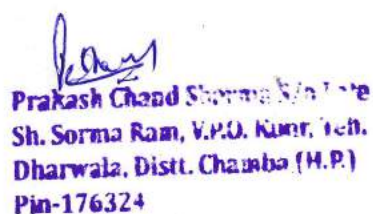 Prakash Chand Sharma S/o Late
Sh. Sorma Ram, V.P.O. Kunr, Teh.
Dharwala, Distt. Chamba (H.P.)
Pin-176324